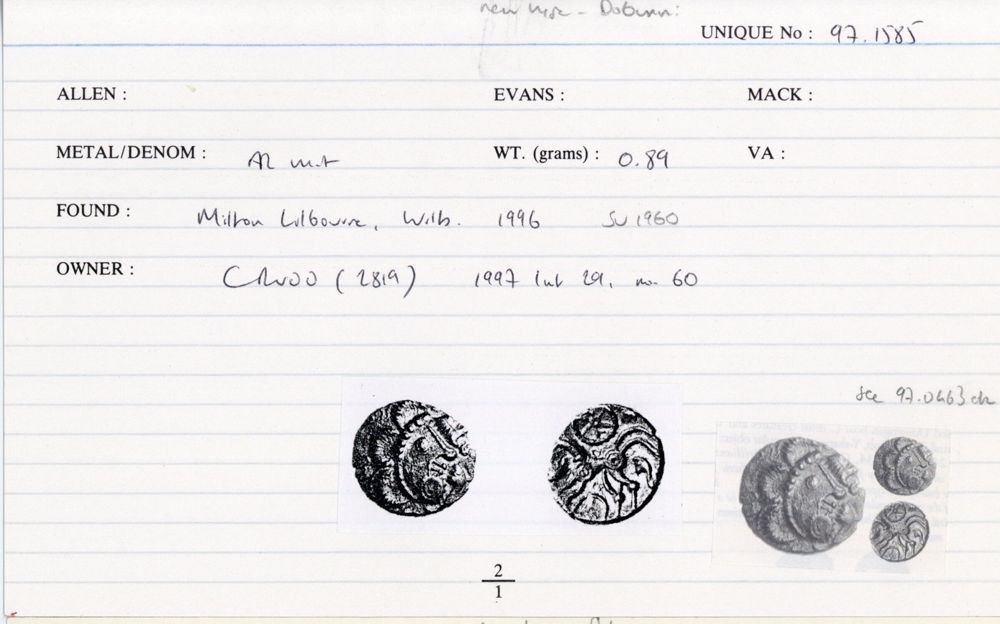 new
UNIQUE No : 97.1585
ALLEN : EVANS : MACK :
METAL/DENOM : AR unit WT. (grams) : 0.89 VA :
FOUND : Milton Lilbourne, Wilts. 1996 SU 1960
OWNER : 1997 29, no. 60
see 97.0663
2
1